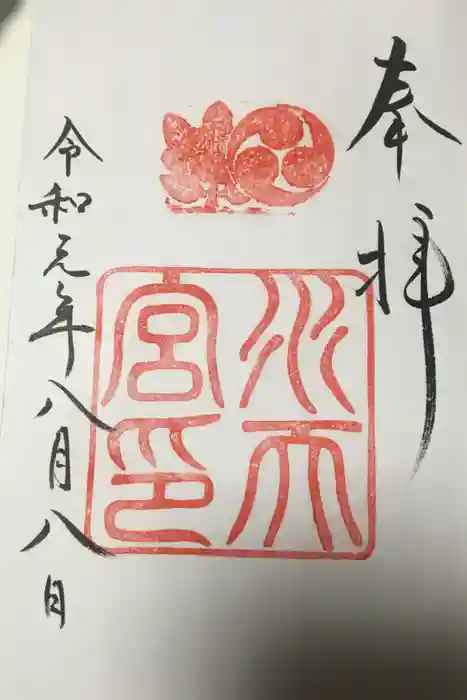 奉拝
水天
宮印
令和元年八月八日